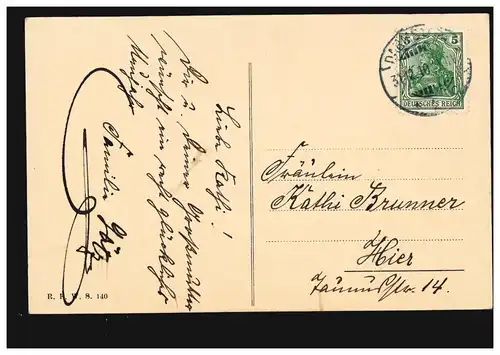 Liebe Kathi!
Dir u. Deiner Großmutter
wünscht ein recht glückliches
Neujahr
Familie
R. F. W. S. 140
5
DEUTSCHES REICH
Fräulein
Käthi Brunner
Hier
Taunusstr. 14.